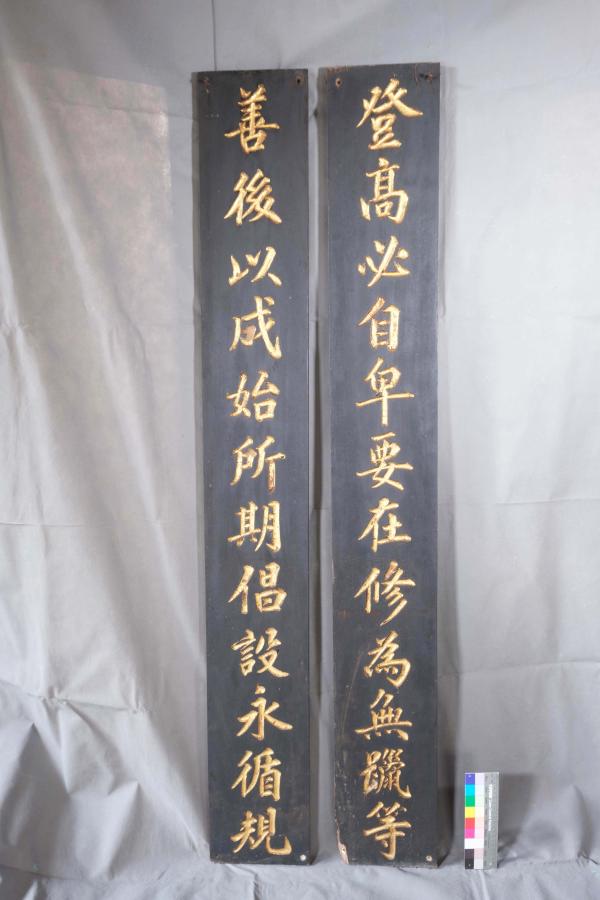 登高必自卑要在修為無躐等
善後以成始所期倡設永循規